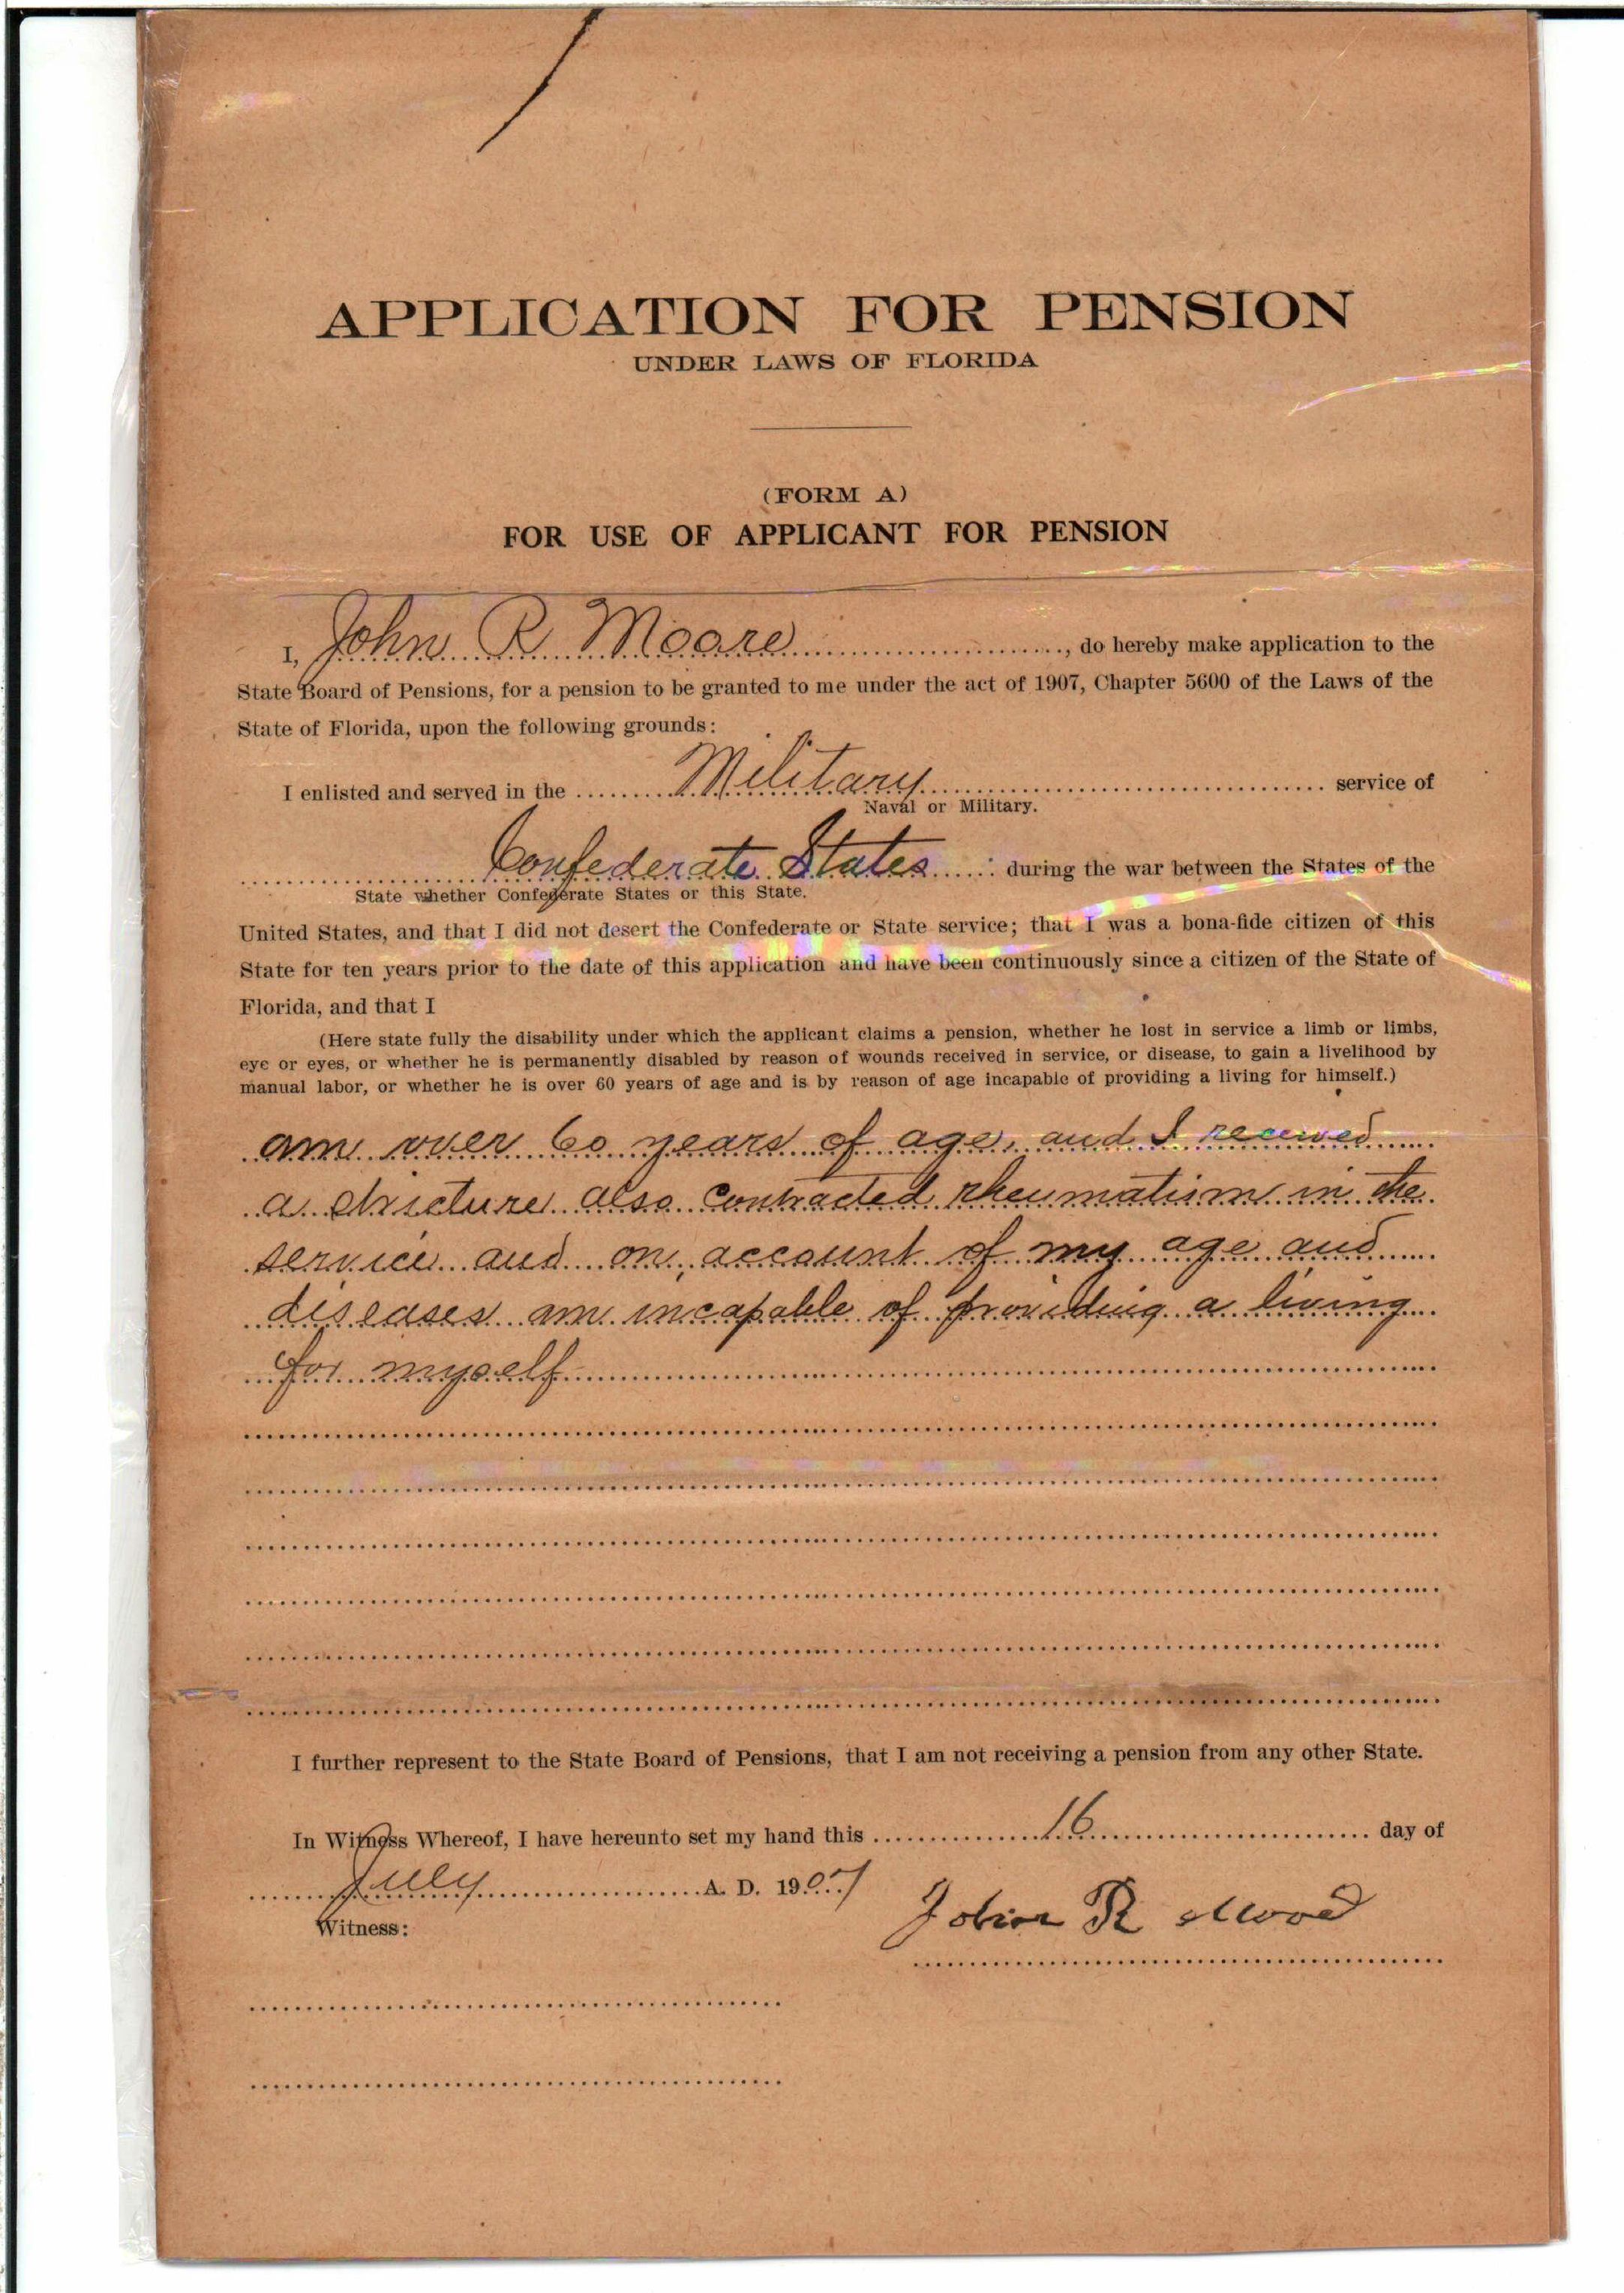 APPLICATION FOR PENSION
UNDER LAWS OF FLORIDA
(FORM A)
FOR USE OF APPLICANT FOR PENSION
I, John R Moore, do hereby make application to the
State Board of Pensions, for a pension to be granted to me under the act of 1907, Chapter 5600 of the Laws of the
State of Florida, upon the following grounds:
I enlisted and served in the Military service of
Naval or Military.
Confederate States : during the war between the States of the
State whether Confederate States or this State.
United States, and that I did not desert the Confederate or State service; that I was a bona-fide citizen of this
State for ten years prior to the date of this application and have been continuously since a citizen of the State of
Florida, and that I
(Here state fully the disability under which the applicant claims a pension, whether he lost in service a limb or limbs,
eye or eyes, or whether he is permanently disabled by reason of wounds received in service, or disease, to gain a livelihood by
manual labor, or whether he is over 60 years of age and is by reason of age incapable of providing a living for himself.)
am over 60 years of age, and I received
a stricture also contracted rheumatism in the
service and on account of my age and
diseases am incapable of providing a living
for myself
I further represent to the State Board of Pensions, that I am not receiving a pension from any other State.
In Witness Whereof, I have hereunto set my hand this 16 day of
July A. D. 1907
John R Moore
Witness: